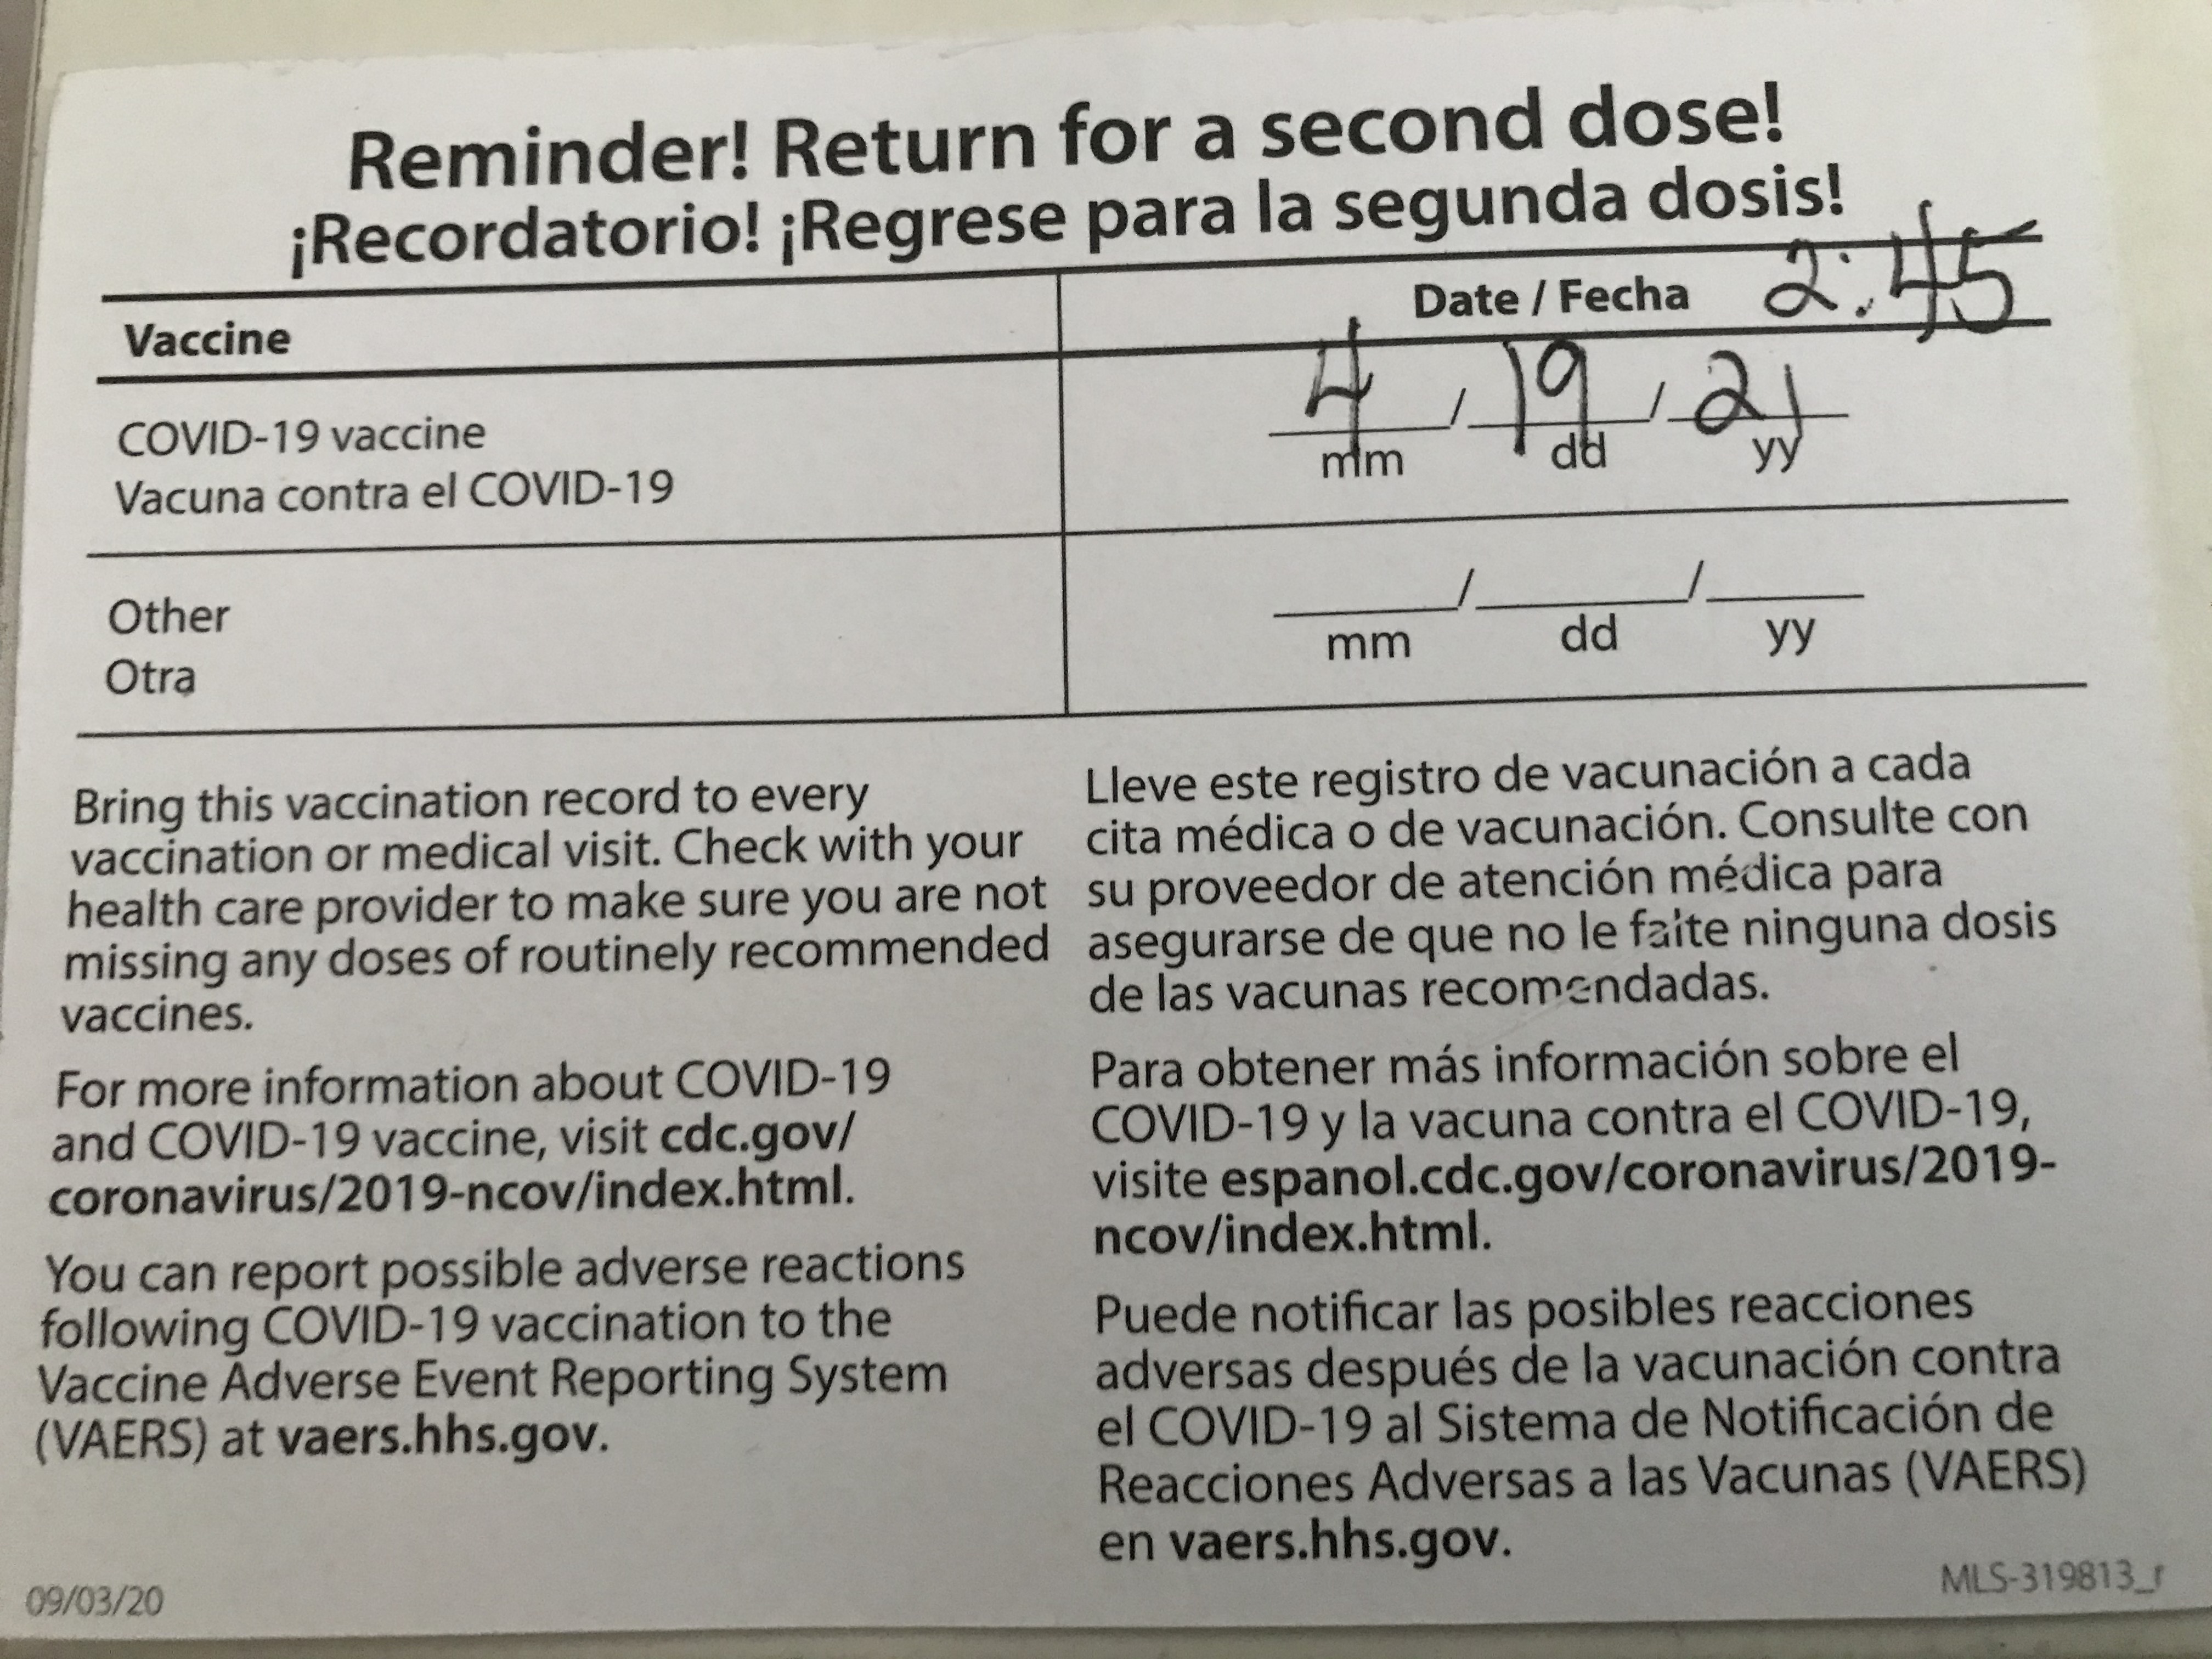 Reminder! Return for a second dose!
¡Recordatorio! ¡Regrese para la segunda dosis!
Vaccine
Date / Fecha 2:45
COVID-19 vaccine
Vacuna contra el COVID-19
4 / 19 / 21
mm dd yy
Other
Otra
/ /
mm dd yy
Bring this vaccination record to every
vaccination or medical visit. Check with your
health care provider to make sure you are not
missing any doses of routinely recommended
vaccines.
For more information about COVID-19
and COVID-19 vaccine, visit cdc.gov/
coronavirus/2019-ncov/index.html.
You can report possible adverse reactions
following COVID-19 vaccination to the
Vaccine Adverse Event Reporting System
(VAERS) at vaers.hhs.gov.
Lleve este registro de vacunación a cada
cita médica o de vacunación. Consulte con
su proveedor de atención médica para
asegurarse de que no le falte ninguna dosis
de las vacunas recomendadas.
Para obtener más información sobre el
COVID-19 y la vacuna contra el COVID-19,
visite espanol.cdc.gov/coronavirus/2019-
ncov/index.html.
Puede notificar las posibles reacciones
adversas después de la vacunación contra
el COVID-19 al Sistema de Notificación de
Reacciones Adversas a las Vacunas (VAERS)
en vaers.hhs.gov.
09/03/20
MLS-319813_r